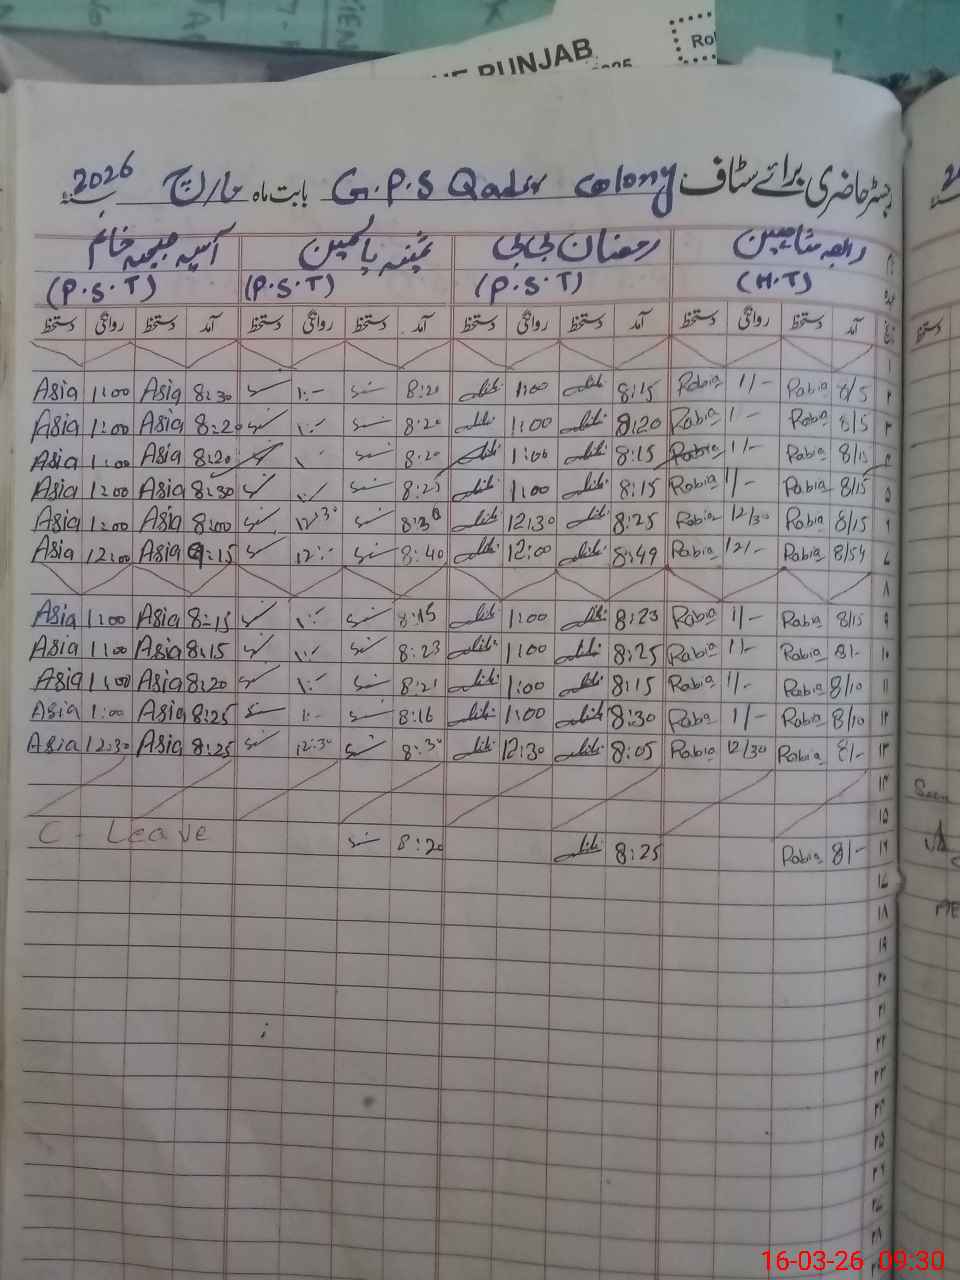 THE PUNJAB
2025
Rol
رجسٹر حاضری برائے سٹاف G.P.S Qader colony بابت ماہ مارچ 2026
رابعہ شاہین رمضان بی بی ثمینہ یاسمین آسیہ جبیہ خانم
(H.T) (P.S.T) (P.S.T) (P.S.T)
تاریخ آمد دستخط روانگی دستخط آمد دستخط روانگی دستخط آمد دستخط روانگی دستخط آمد دستخط روانگی دستخط
۱
Asia 1:00 Asia 8:30 1:- 8:20 1:00 8:15 Rabia 1/- Rabia 8/5 ۲
Asia 1:00 Asia 8:20 1:- 8:20 1:00 8:20 Rabia 1- Rabia 8/5 ۳
Asia 1:00 Asia 8:20 8:20 1:00 8:15 Rabia 1/- Rabia 8/15 ۴
Asia 1:00 Asia 8:30 1:- 8:25 1:00 8:15 Rabia 1/- Rabia 8/15 ۵
Asia 1:00 Asia 8:00 12:30 8:30 12:30 8:25 Rabia 12/30 Rabia 8/15 ۶
Asia 12:00 Asia 9:15 12:- 8:40 12:00 8:49 Rabia 12/- Rabia 8/54 ۷
۸
Asia 1:00 Asia 8:15 1:- 8:15 1:00 8:23 Rabia 1/- Rabia 8/15 ۹
Asia 1:00 Asia 8:15 1:- 8:23 1:00 8:25 Rabia 1/- Rabia 8/- ۱۰
Asia 1:00 Asia 8:20 1:- 8:21 1:00 8:15 Rabia 1/- Rabia 8/10 ۱۱
Asia 1:00 Asia 8:25 1:- 8:16 1:00 8:30 Rabia 1/- Rabia 8/10 ۱۲
Asia 12:30 Asia 8:25 12:30 8:30 12:30 8:05 Rabia 12/30 Rabia 8/- ۱۳
۱۴
۱۵
C - Leave 8:20 8:25 Rabia 8/- ۱۶
۱۷
۱۸
۱۹
۲۰
۲۱
۲۲
۲۳
۲۴
۲۵
۲۶
۲۷
۲۸
دستخط
Seen
16-03-26 09:30